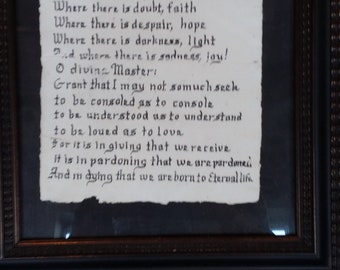 Where there is doubt, faith
Where there is despair, hope
Where there is darkness, light
And where there is sadness, joy!
O divine Master:
Grant that I may not somuch seek
to be consoled as to console
to be understood as to understand
to be loved as to love
For it is in giving that we receive
it is in pardoning that we are pardoned
And in dying that we are born to Eternal life.